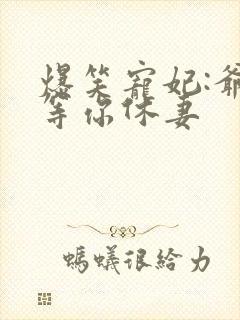 爆笑寵妃:爺
等你休妻
螞蟻很給力